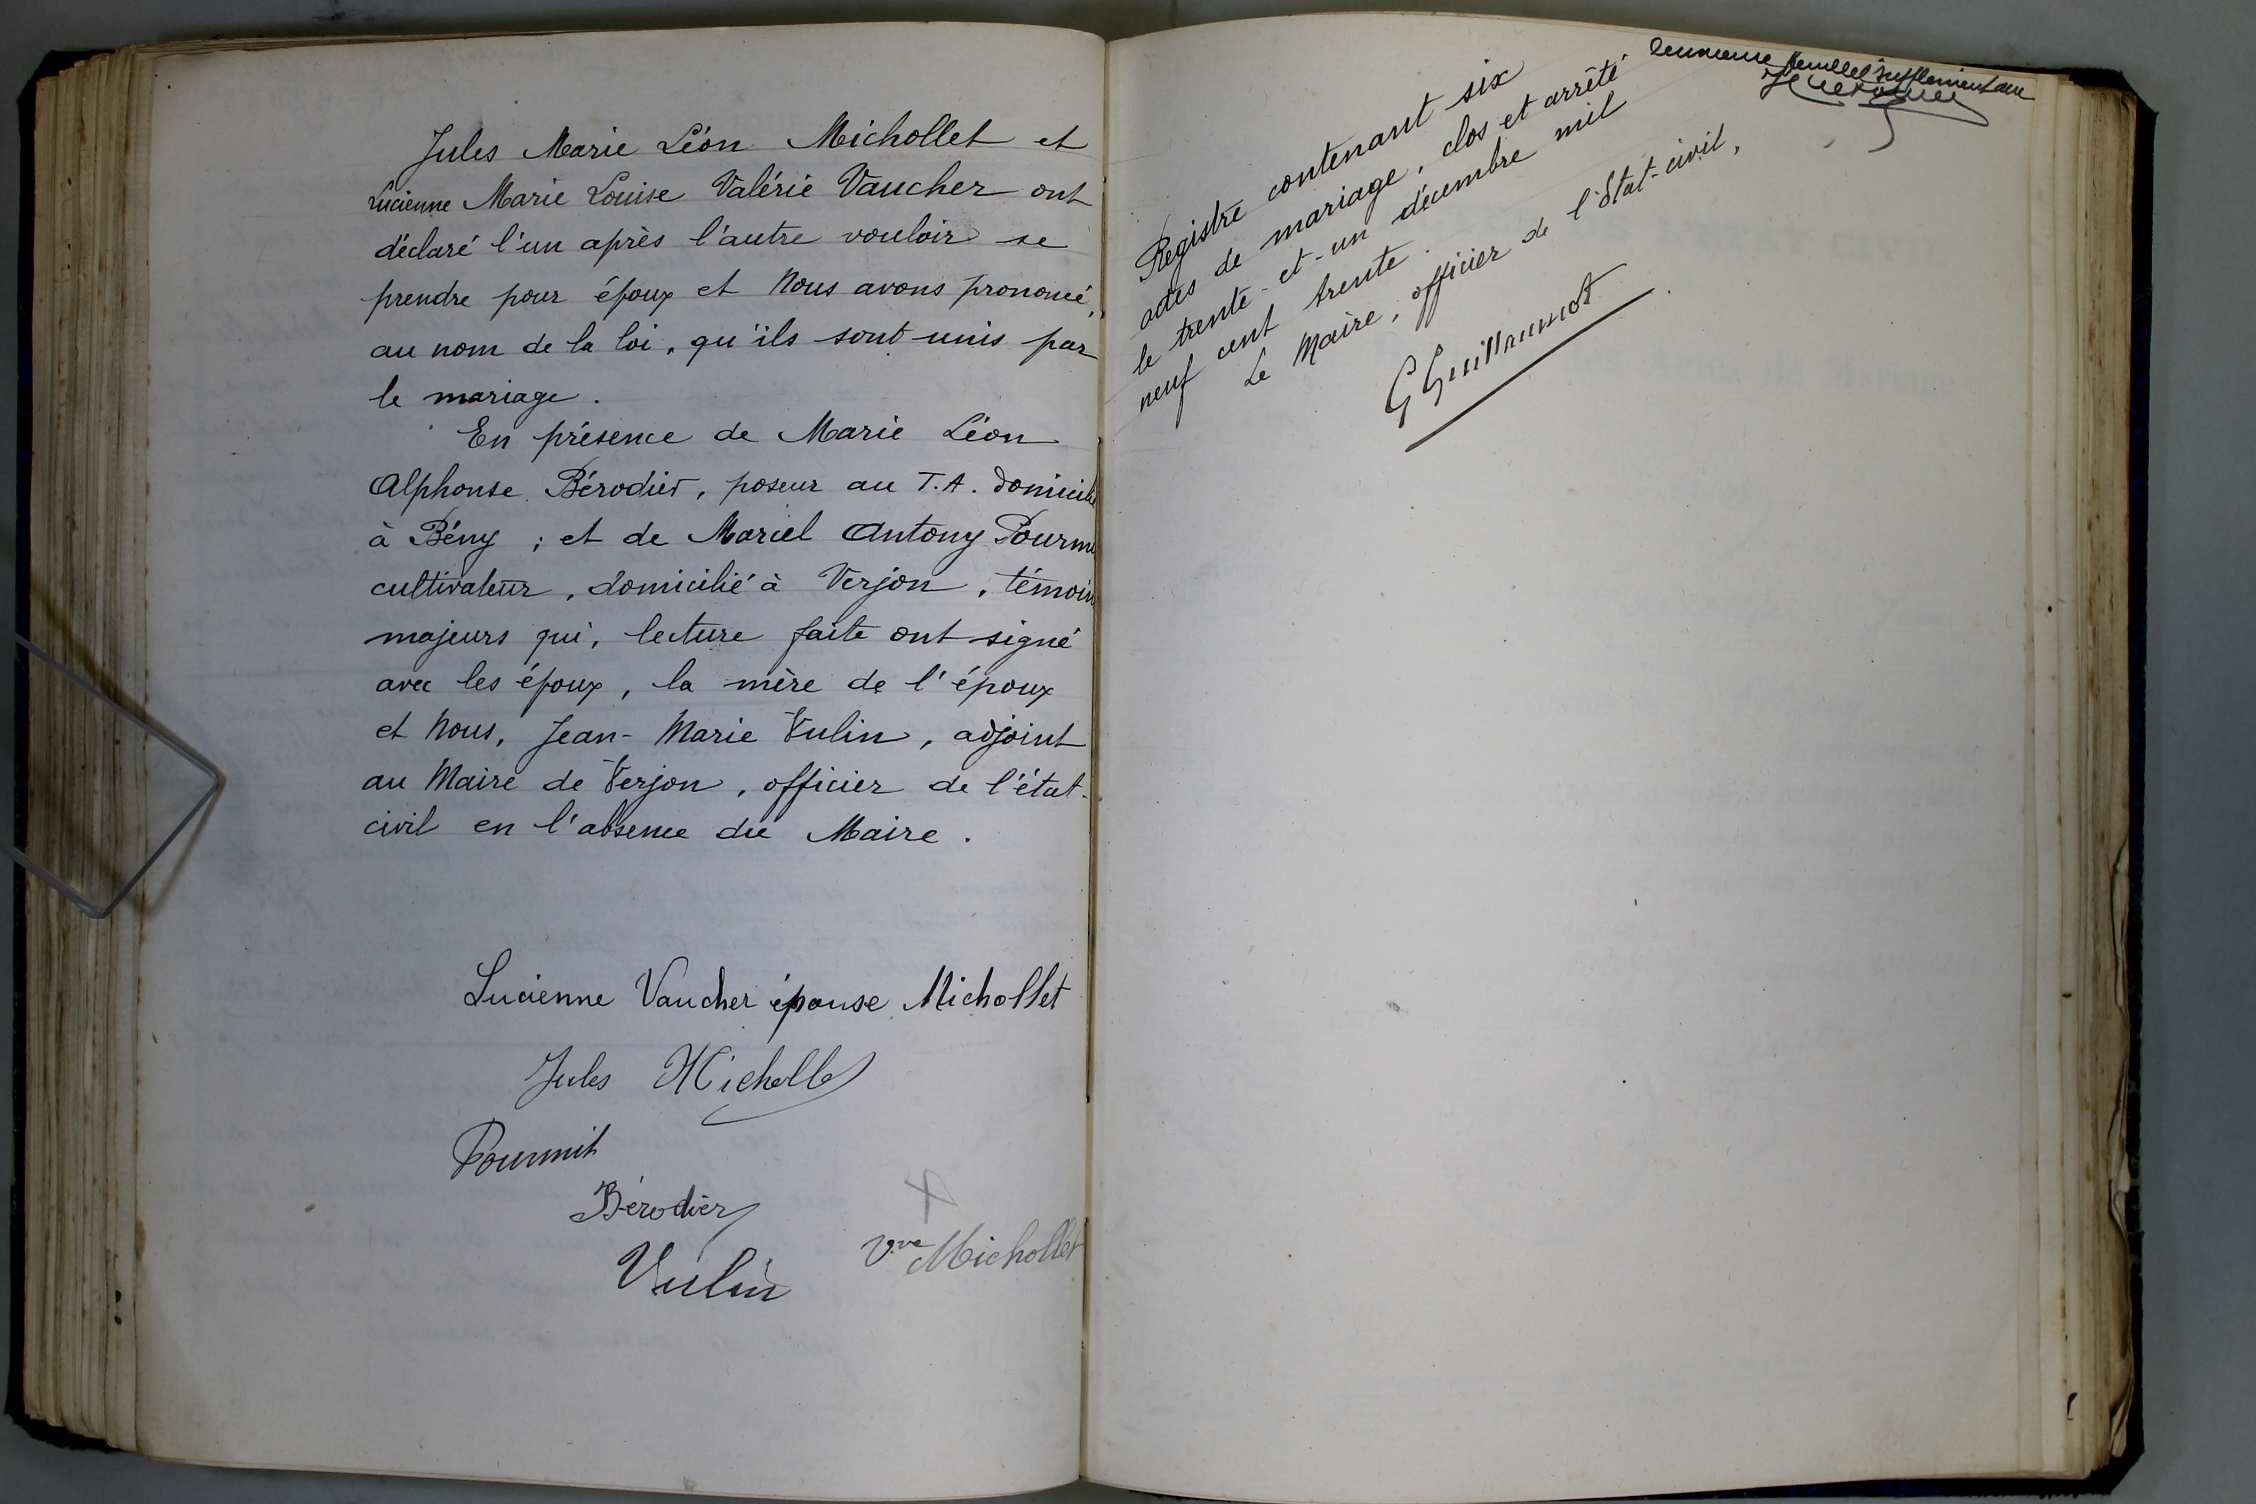 Jules Marie Léon Michollet et
Lucienne Marie Louise Valérie Vaucher ont
déclaré l'un après l'autre vouloir se
prendre pour époux et Nous avons prononcé,
au nom de la loi, qu'ils sont unis par
le mariage.
En présence de Marie Léon
Alphonse Bérodier, poseur au T.A. domicilié
à Bény ; et de Marcel Antony
cultivateur, domicilié à Verjon, témoins
majeurs qui, lecture faite ont signé
avec les époux, la mère de l'époux
et Nous, Jean-Marie Vulin, adjoint
au Maire de Verjon, officier de l'état-
civil en l'absence du Maire.
Lucienne Vaucher épouse Michollet
Jules Michollet
Bérodier
Vulin
Vve Michollet
feuillet supplémentaire
Registre contenant six
actes de mariage, clos et arrêté
le trente-et-un décembre mil
neuf cent trente.
Le Maire, officier de l'Etat-civil,
G Guillaumot